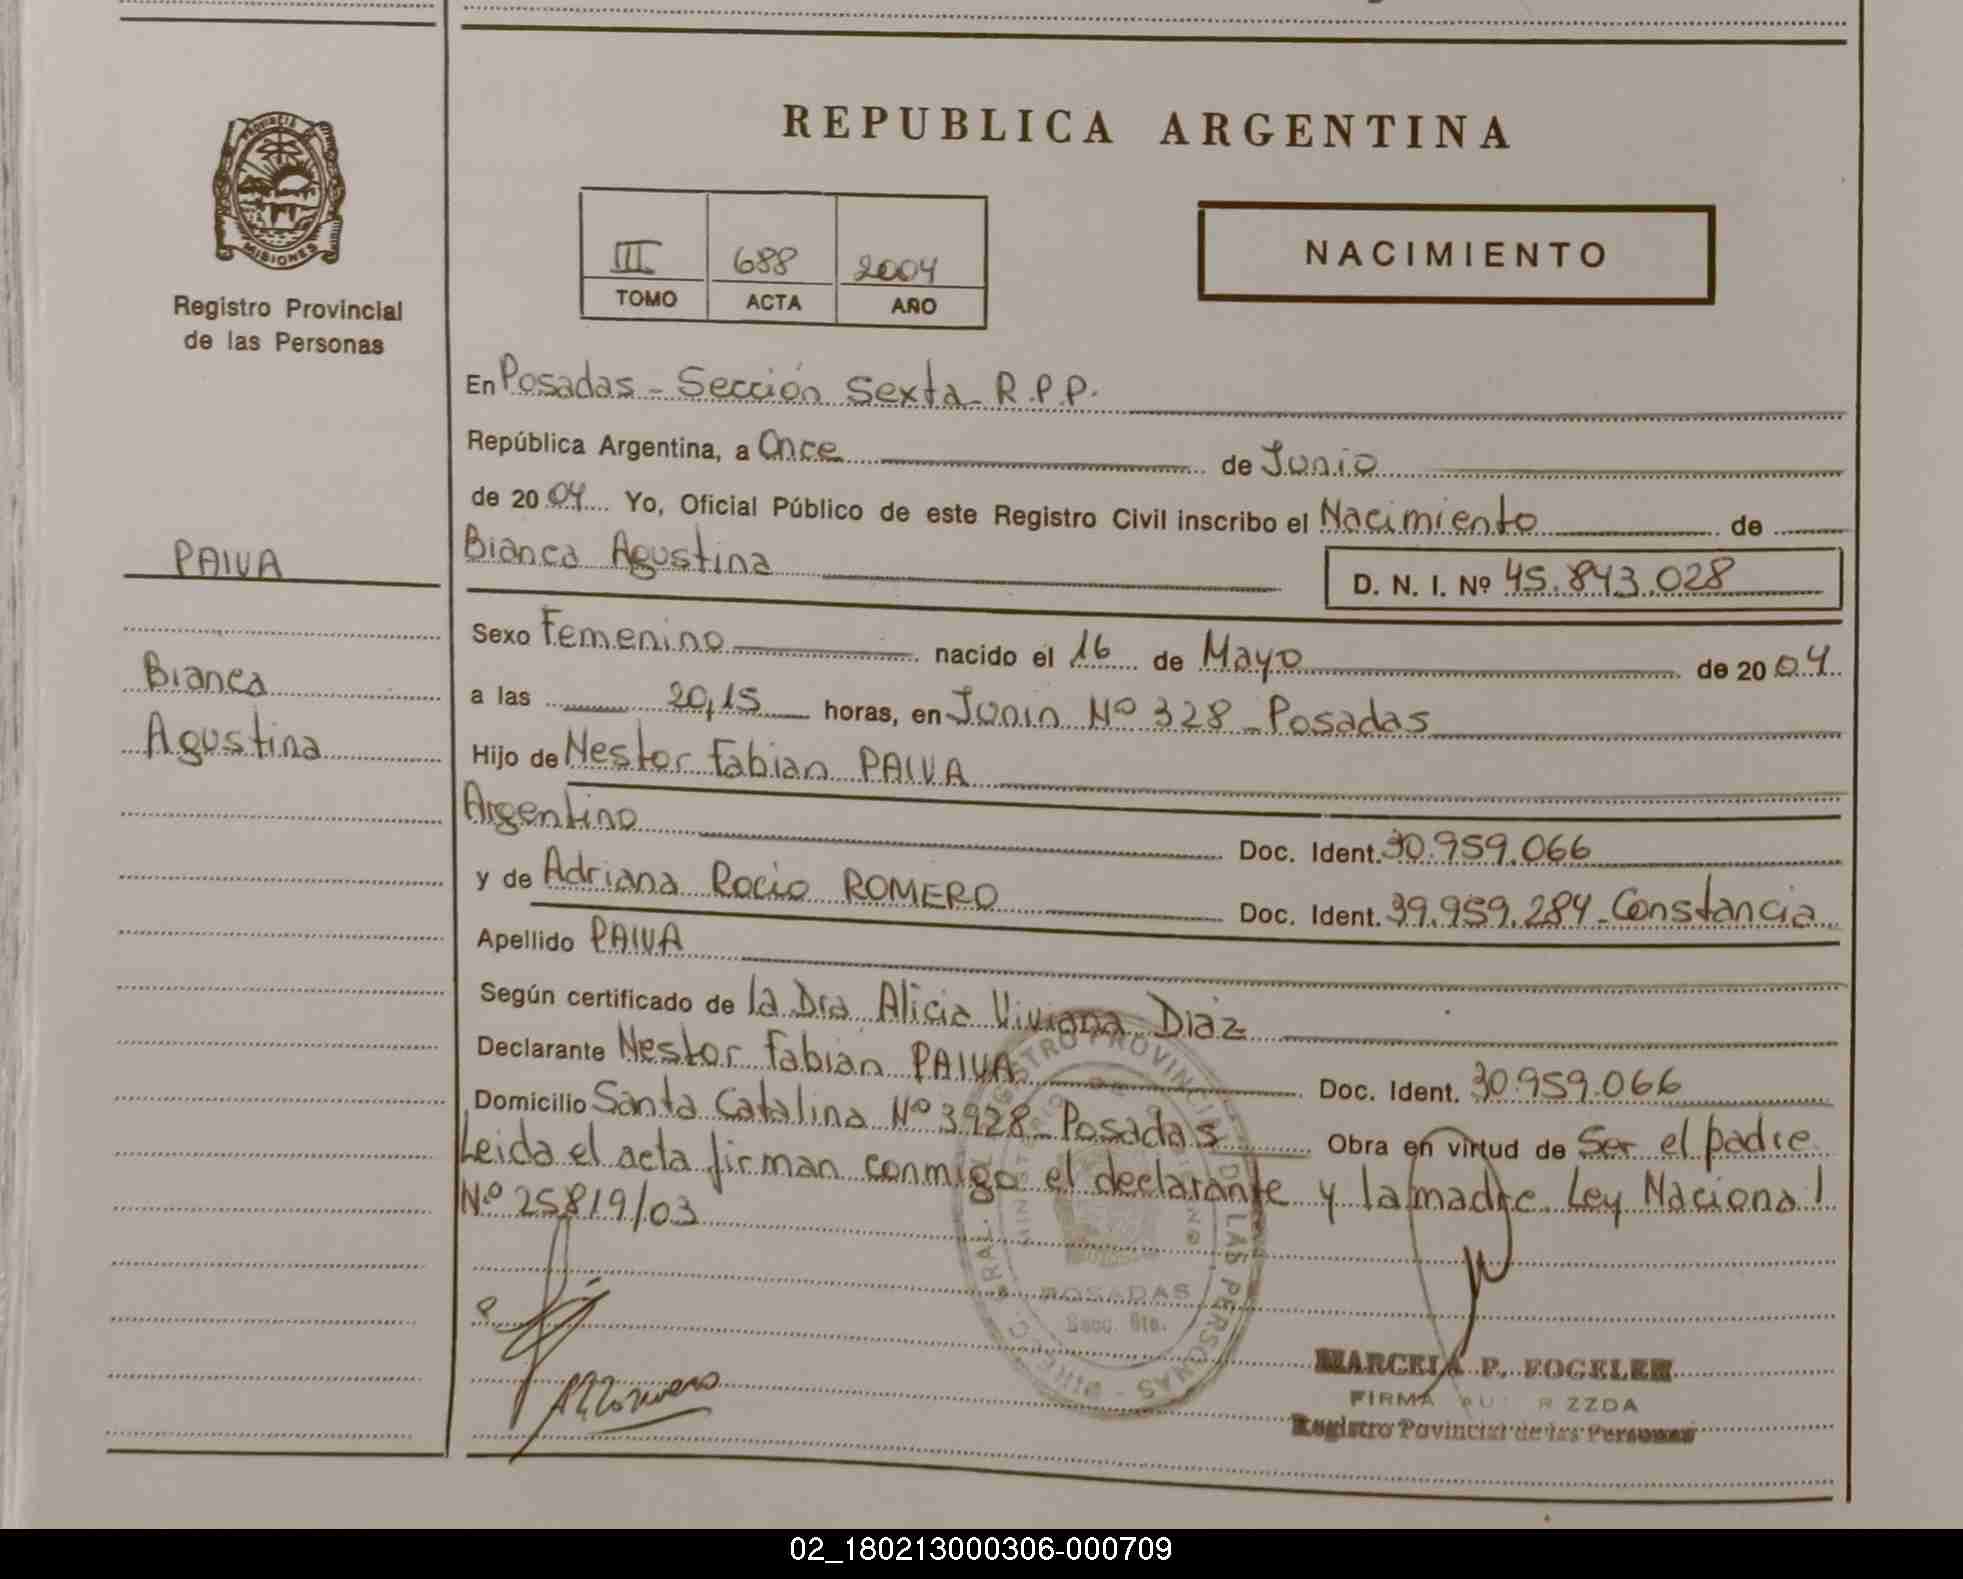 REPUBLICA ARGENTINA
PROVINCIA DE
MISIONES
Registro Provincial
de las Personas
III 688 2004
TOMO ACTA AÑO
NACIMIENTO
En Posadas - Sección Sexta R.P.P.
República Argentina, a Once de Junio
de 2004 Yo, Oficial Público de este Registro Civil inscribo el Nacimiento de
PAIVA
Bianca Agustina D. N. I. Nº 45.843.028
Sexo Femenino nacido el 16 de Mayo de 2004
Bianca
a las 20,15 horas, en Junin Nº 328 - Posadas
Agustina
Hijo de Nestor Fabian PAIVA
Argentino Doc. Ident. 30.959.066
y de Adriana Rocio ROMERO Doc. Ident. 39.959.284 - Constancia
Apellido PAIVA
Según certificado de la Dra Alicia Viviana Diaz
Declarante Nestor Fabian PAIVA Doc. Ident. 30.959.066
Domicilio Santa Catalina Nº 3928 - Posadas Obra en virtud de Ser el padre
Leida el acta firman conmigo el declarante y la madre. Ley Nacional
Nº 25819/03
POSADAS
Secc. 6ta.
ARomero
MARCELA P. FOGELER
FIRMA
Registro Provincial de las Personas
02_180213000306-000709